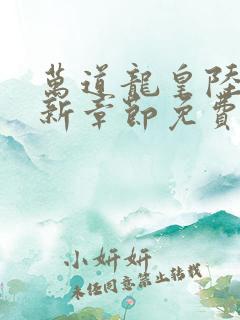 萬道龍皇陸
新章節免費
小妍妍
未經同意禁止轉載